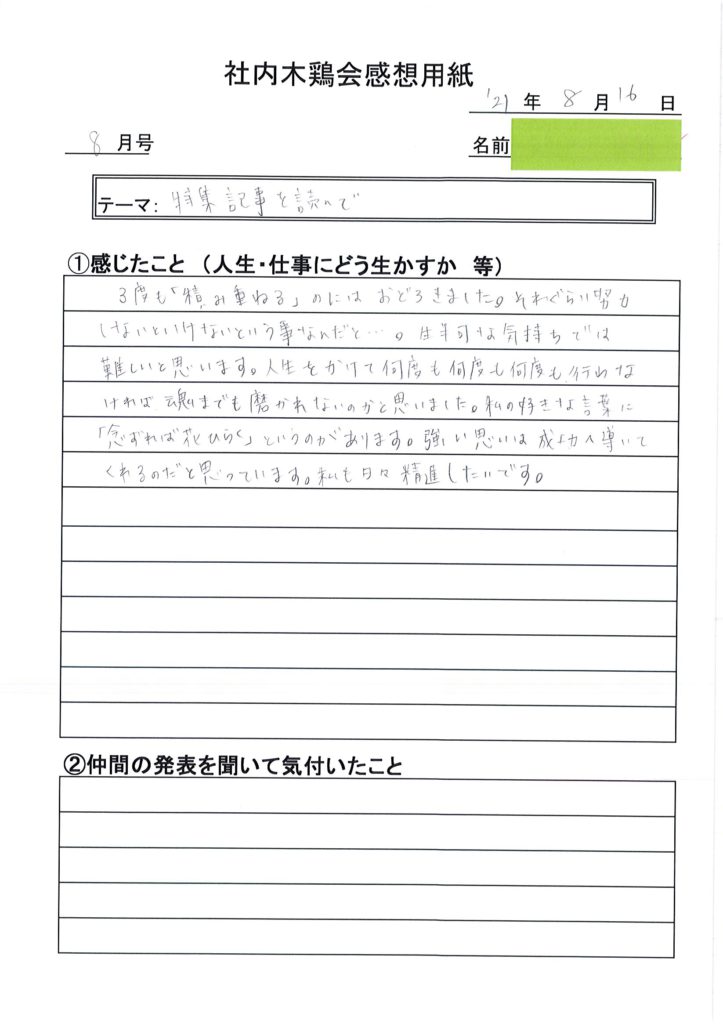 社内木鶏会感想用紙
'21 年 8 月 16 日
8 月号
名前
テーマ: 特集記事を読んで
①感じたこと (人生・仕事にどう生かすか 等)
3度も「積み重ねる」のには おどろきました。それぐらい努力
しないといけないという事なんだと…。生半可な気持ちでは
難しいと思います。人生をかけて何度も何度も何度も、行わな
ければ 魂までも磨かれないのかと思いました。私の好きな言葉に
「念ずれば花ひらく」というのがあります。強い思いは成功へ導いて
くれるのだと思っています。私も日々精進したいです。
②仲間の発表を聞いて気付いたこと